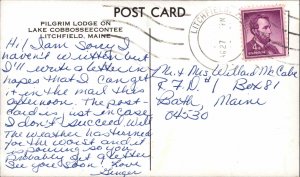 POST CARD
PILGRIM LODGE ON
LAKE COBBOSSEECONTEE
LITCHFIELD, MAINE
Hi! I am sorry I
haven't written but
I'll write a letter in
hopes that I can get
it in the mail this
afternoon. The post-
card is just in case
I don't succeed. Well
the weather has turned
for the worst and it
is pouring so you
probably get a letter
See you Soon! Love
Ginger
LITCHFIELD
PM
4¢
Mr. & Mrs Willard McCabe
R.F.D. #1 Box 81
Bath, Maine
04530